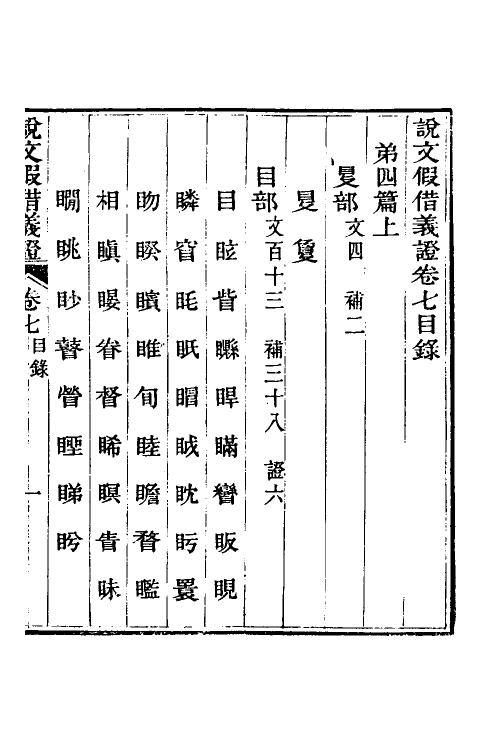 說文假借義證卷七目錄
第四篇上
𡕥部文四 補二
𡕥 敻
目部文百十三 補三十八 證六
目 眩 眥 矊 睅 瞞 矕 眅 睍
瞵 窅 眊 眂 䀛 眓 眈 盱 瞏
眑 睽 矉 睢 旬 睦 瞻 瞀 𥌈
相 瞋 䁙 眷 督 睎 瞑 眚 眛
瞯 眺 眇 瞽 瞥 䀴 睇 盻
說文假借義證 卷七目錄 一